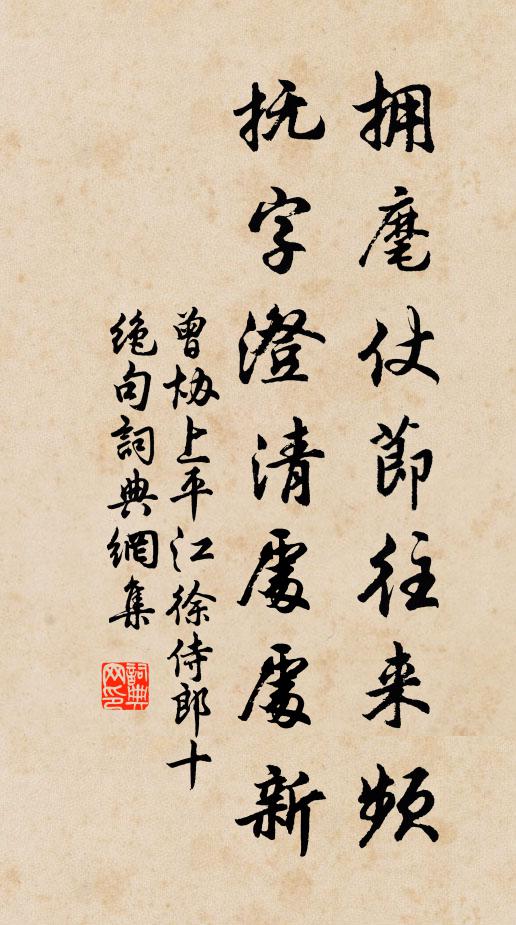 拥麾仗節往来频
抚字澄清處處新
曾协上平江徐侍郎十
絶句詞典網集
詞典網印